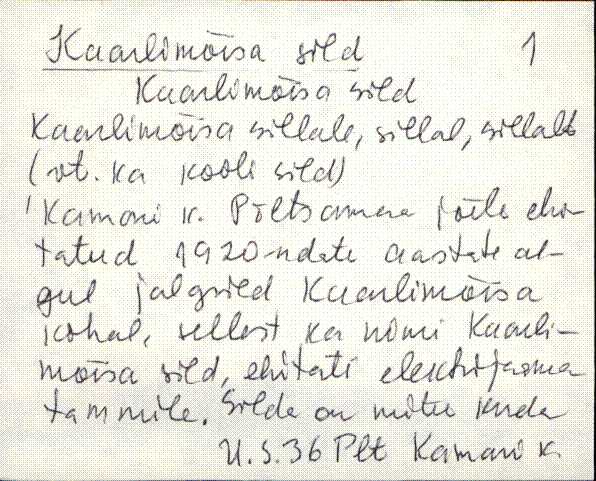 Kaarlimõisa sild 1
Kaarlimõisa sild
Kaarlimõisa sillale, sillal, sillalt
(vt. ka kooli sild)
Kamari k. Põltsamaa jõele ehi-
tatud 1920-ndate aastate al-
gul jalgsild Kaarlimõisa
kohal, sellest ka nimi Kaarli-
mõisa sild, ehitati elektrijaama
tammile. Silda on mitu korda
U.S.36 Plt Kamari k.